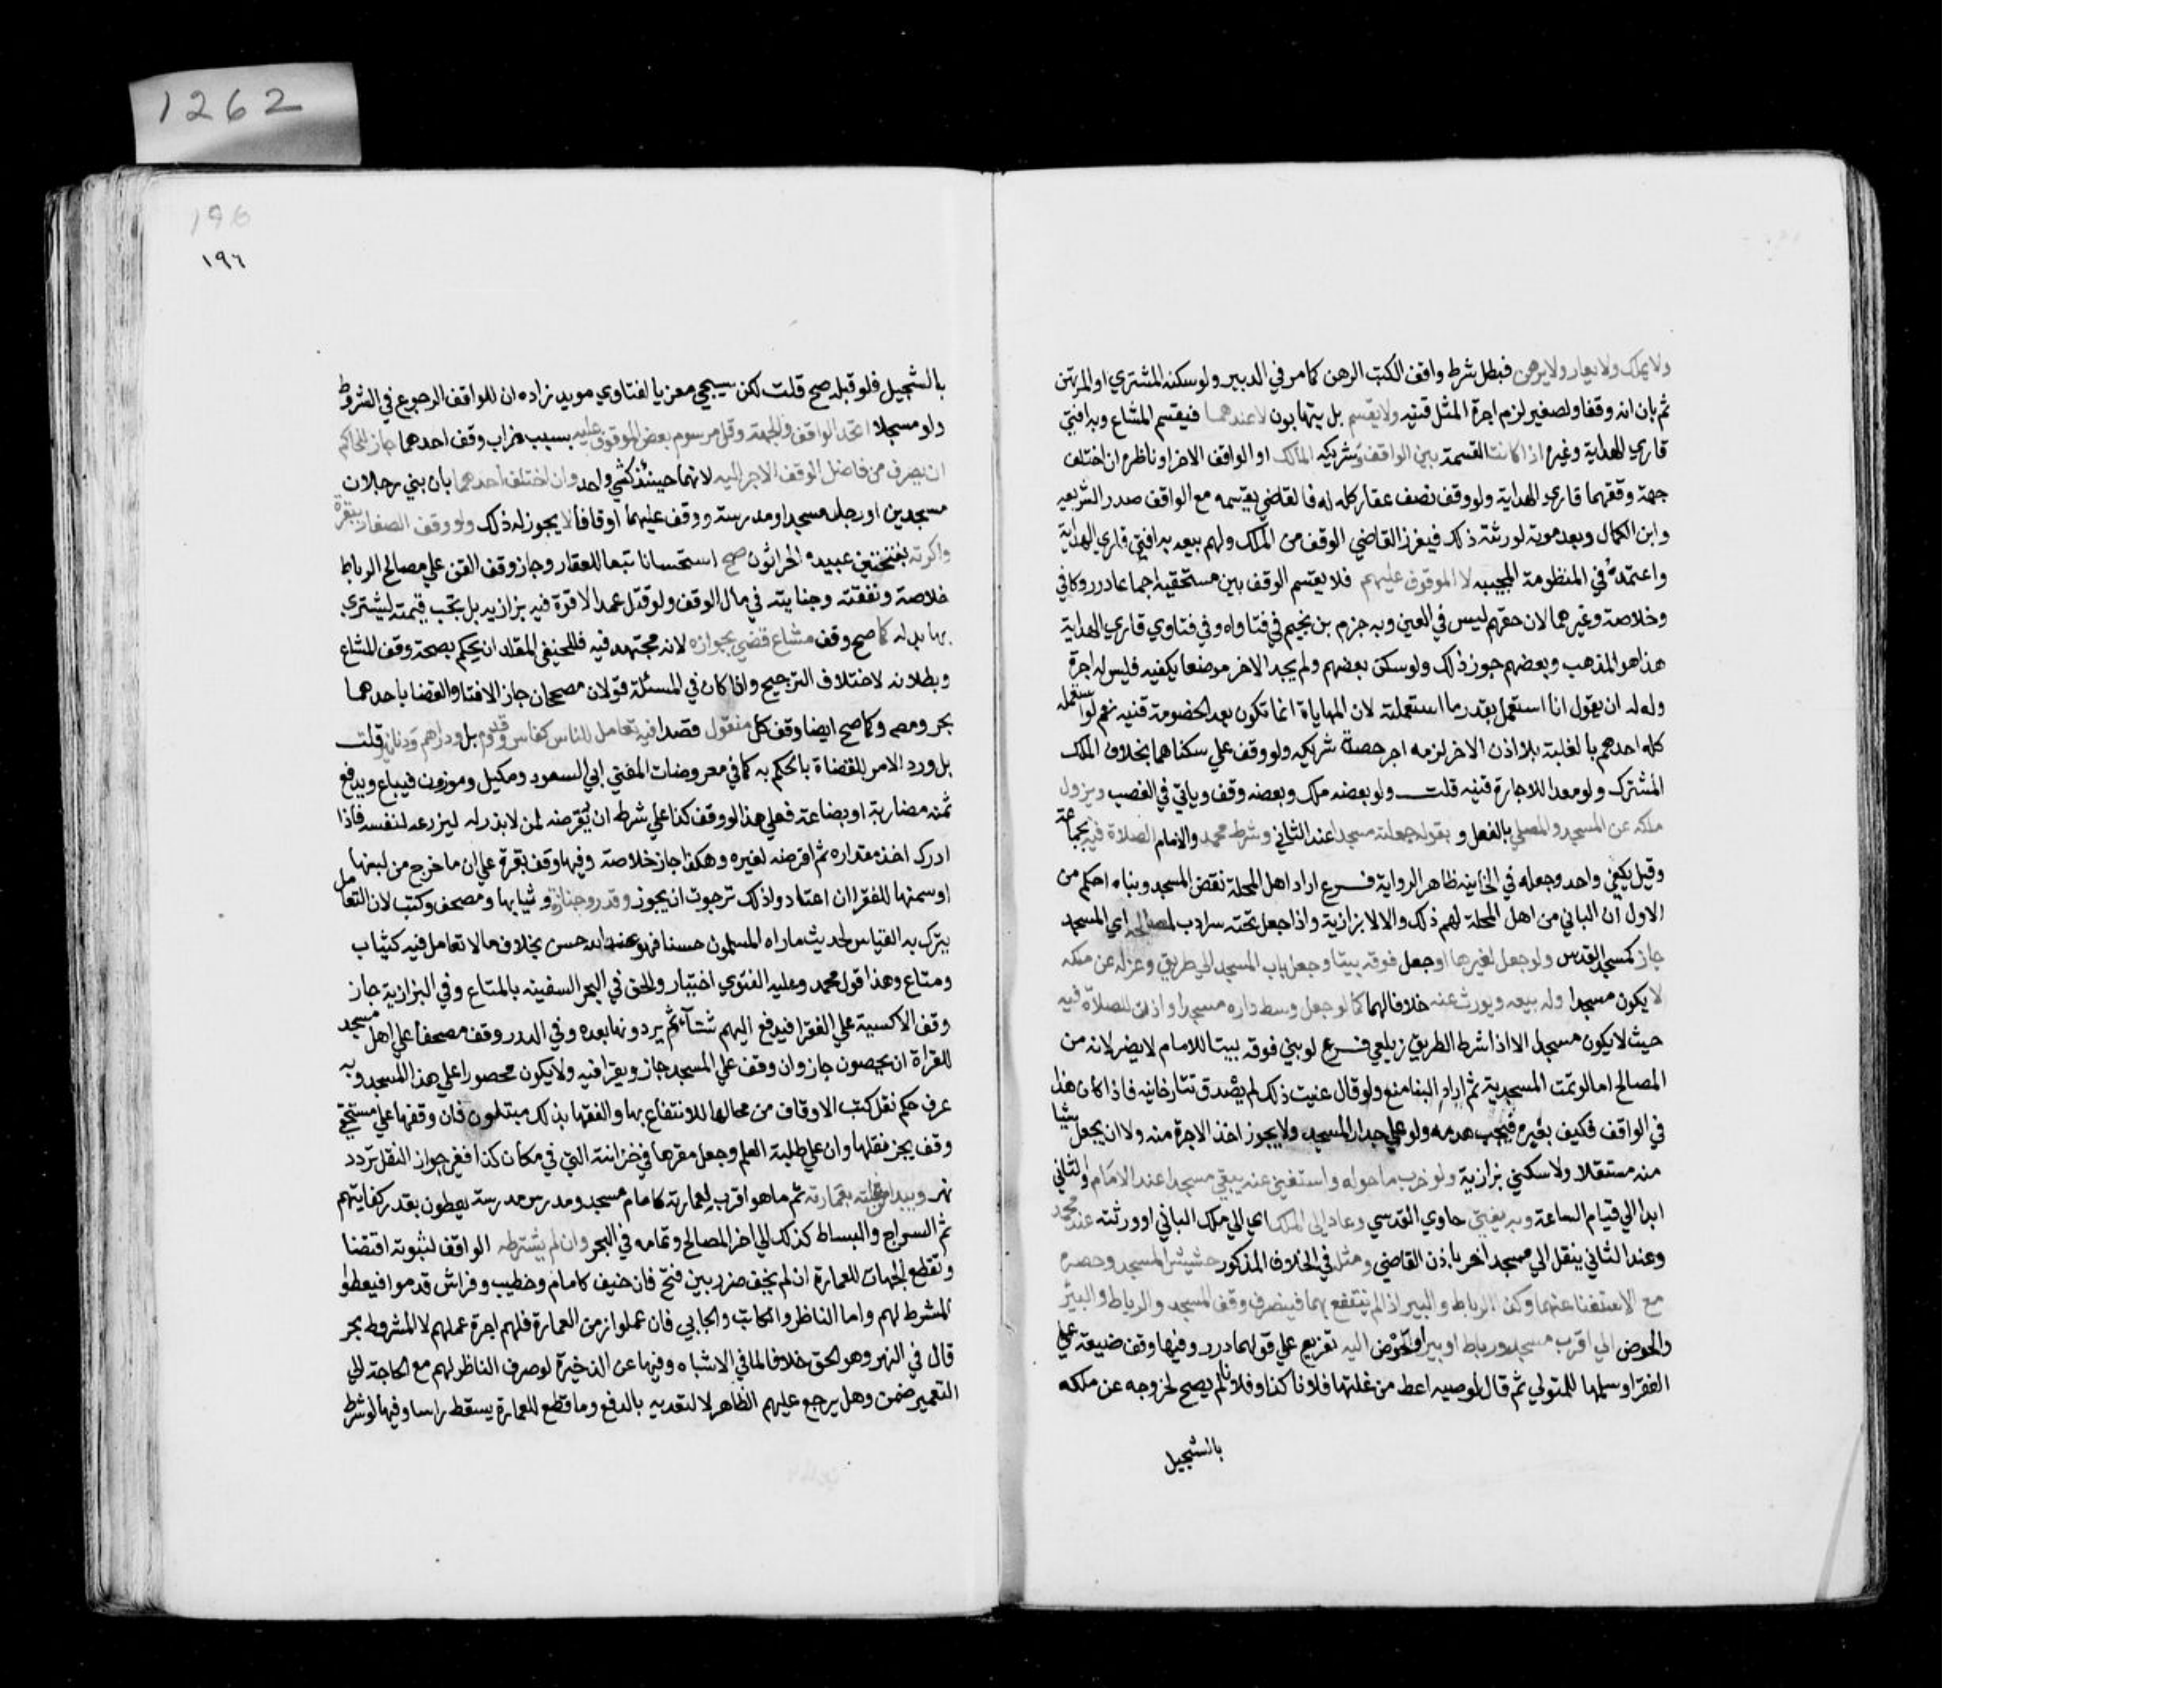 1262
ولا يملك ولا يعار ولا يرهن فبطل شرط واقف الكتب الرهن كما مر في التدبير ولو سكنه المشتري او المرتهن
ثم بان انه وقف او لصغير لزم اجرة المثل قنيه ولا يقسم بل يتهايون لا عندهما فيقسم المشاع وبه افتي
قاري الهداية وغيره اذا كانت القسمة بين الواقف وشريكه المالك او الواقف الاخر او ناظره ان اختلف
جهة وقفهما قاري الهداية ولو وقف نصف عقار كله له فالقاضي يقسمه مع الواقف صدر الشريعه
وابن الكمال وبعد موته لورثته ذلك فيفرز القاضي الوقف من الملك ولهم بيعه به افتي قاري الهداية
واعتمده في المنظومة المحبيه لا الموقوف عليهم فلا يقسم الوقف بين مستحقيه اجماعا درر وكافي
وخلاصة وغيرهما لان حقهم ليس في العين وبه جزم بن نجيم في فتاواه وفي فتاوي قاري الهداية
هذا هو المذهب وبعضهم جوز ذلك ولو سكن بعضهم ولم يجد الاخر موضعا يكفيه فليس له اجرة
ولا له ان يقول انا استعمل بقدر ما استعملته لان المهاياة انما تكون بعد الخصومة قنيه نعم لو استعمله
كله احدهم بالغلبة بلا اذن الاخر لزمه اجر حصة شريكه ولو وقف علي سكناهما بخلاف الملك
المشترك ولو معدا للاجارة قنيه قلت ولو بعضه ملك وبعضه وقف وياتي في الغصب ويزول
ملكه عن المسجد والمصلي بالفعل وبقوله جعلته مسجدا عند الثاني وشرط محمد والامام الصلاة فيه بجماعة
وقيل يكفي واحد وجعله في الخانيه ظاهر الرواية فرع اراد اهل المحلة نقض المسجد وبناه احكم من
الاول ان الباني من اهل المحلة لهم ذلك والا لا بزازية واذا جعل تحته سرداب لمصالحه اي المسجد
جاز كمسجد القدس ولو جعل لغيرها او جعل فوقه بيتا وجعل باب المسجد الي طريق وعزله عن ملكه
لا يكون مسجدا وله بيعه ويورث عنه خلافا لهما كما لو جعل وسط داره مسجدا واذن للصلاة فيه
حيث لا يكون مسجدا الا اذا شرط الطريق زيلعي فرع لو بني فوقه بيتا للامام لا يضر لانه من
المصالح اما لو تمت المسجدية ثم اراد البنا منع ولو قال عنيت ذلك لم يصدق تتارخانيه فاذا كان هذا
في الواقف فكيف بغيره فيجب هدمه ولو علي جدار المسجد ولا يجوز اخذ الاجرة منه ولا ان يجعل شيا
منه مستغلا ولا سكني بزازية ولو خرب ما حوله واستغني عنه يبقي مسجدا عند الامام والثاني
ابدا الي قيام الساعة وبه يفتي حاوي القدسي وعاد الي الملك اي الي ملك الباني او ورثته عند محمد
وعند الثاني ينقل الي مسجد اخر باذن القاضي ومثل في الخلاف المذكور حشيش المسجد وحصره
مع الاستغنا عنهما وكذا الرباط والبير اذا لم ينتفع بهما فيصرف وقف المسجد والرباط والبئر
والحوض الي اقرب مسجد او رباط او بير او حوض اليه تفريع علي قولهما درر وفيها وقف ضيعة علي
الفقرا وسلمها للمتولي ثم قال لوصيه اعط من غلتها فلانا كذا وفلانا لم يصح لخروجه عن ملكه
بالتسجيل
196
١٩٦
بالتسجيل فلو قبله صح قلت لكن سيجي معزيا لفتاوي مويد زاده ان للواقف الرجوع في الشروط
ولو مسجلا اتحد الواقف والجهة وقل مرسوم بعض الموقوف عليه بسبب خراب وقف احدهما جاز للحاكم
ان يصرف من فاضل الوقف الاخر اليه لانهما حينئذ كشي واحد وان اختلف احدهما بان بني رجلان
مسجدين او رجل مسجدا ومدرسة ووقف عليهما اوقافا لا يجوز له ذلك ولو وقف العقار ببقره
واكرته بفتحتين عبيده الحراثون صح استحسانا تبعا للعقار وجاز وقف القن علي مصالح الرباط
خلاصة ونفقته وجنايته في مال الوقف ولو قتل عمدا لا قود فيه بزازيه بل تجب قيمته ليشتري
بها بدله كما صح وقف مشاع قضي بجوازه لانه مجتهد فيه فللحنفي المقلد ان يحكم بصحة وقف المشاع
وبطلانه لاختلاف الترجيح واذا كان في المسئلة قولان مصححان جاز الافتا والقضا باحدهما
بحر ومصـ وكما صح ايضا وقف كل منقول قصدا فيه تعامل للناس كفاس وقدوم بل ودراهم ودنانير قلت
بل ورد الامر للقضاة بالحكم به كما في معروضات المفتي ابي السعود ومكيل وموزون فيباع ويدفع
ثمنه مضاربة او بضاعة فعلي هذا لو وقف كذا علي شرط ان يقرضه لمن لا بذر له ليزرعه لنفسه فاذا
ادرك اخذ مقداره ثم اقرضه لغيره وهكذا جاز خلاصة وفيها وقف بقرة علي ان ما خرج من لبنها
او سمنها للفقرا ان اعتادوا ذلك رجوت ان يجوز وقدر وجنازة وثيابها ومصحف وكتب لان التعامل
يترك به القياس لحديث ماراه المسلمون حسنا فهو عند الله حسن بخلاف ما لا تعامل فيه كثياب
ومتاع وهذا قول محمد وعليه الفتوي اختيار والحق في البحر السفينه بالمتاع وفي البزازية جاز
وقف الاكسية علي الفقرا فيدفع اليهم شتاء ثم يردونها بعده وفي الدرر وقف مصحفا علي اهل مسجد
للقراة ان يحصون جاز وان وقف علي المسجد جاز ويقرا فيه ولا يكون محصورا علي هذا المسجد وبه
عرف حكم نقل كتب الاوقاف من محالها للانتفاع بها والفقها بذلك مبتلون فان وقفها علي مستحقي
وقف يجز نقلها وان علي طلبة العلم وجعل مقرها في خزانته التي في مكان كذا ففي جواز النقل تردد
نهر ويبدا من غلته بعمارته ثم ما هو اقرب لعمارته كامام مسجد ومدرس مدرسة يعطون بقدر كفايتهم
ثم السراج والبساط كذلك الي اخر المصالح وتمامه في البحر وان لم يشترطه الواقف لثبوته اقتضا
وتقطع الجهات للعمارة ان لم يخف ضرر بين فتح فان خيف كامام وخطيب وفراش قدموا فيعطوا
المشرط لهم واما الناظر والكاتب والجابي فان عملوا زمن العمارة فلهم اجرة عملهم لا المشروط بحر
قال في النهر وهو الحق خلافا لما في الاشباه وفيها عن الذخيرة لو صرف الناظر لهم مع الحاجة الي
التعمير ضمن وهل يرجع عليهم الظاهر لا لتعديه بالدفع وما قطع للعمارة يسقط راسا وفيها لو شرط